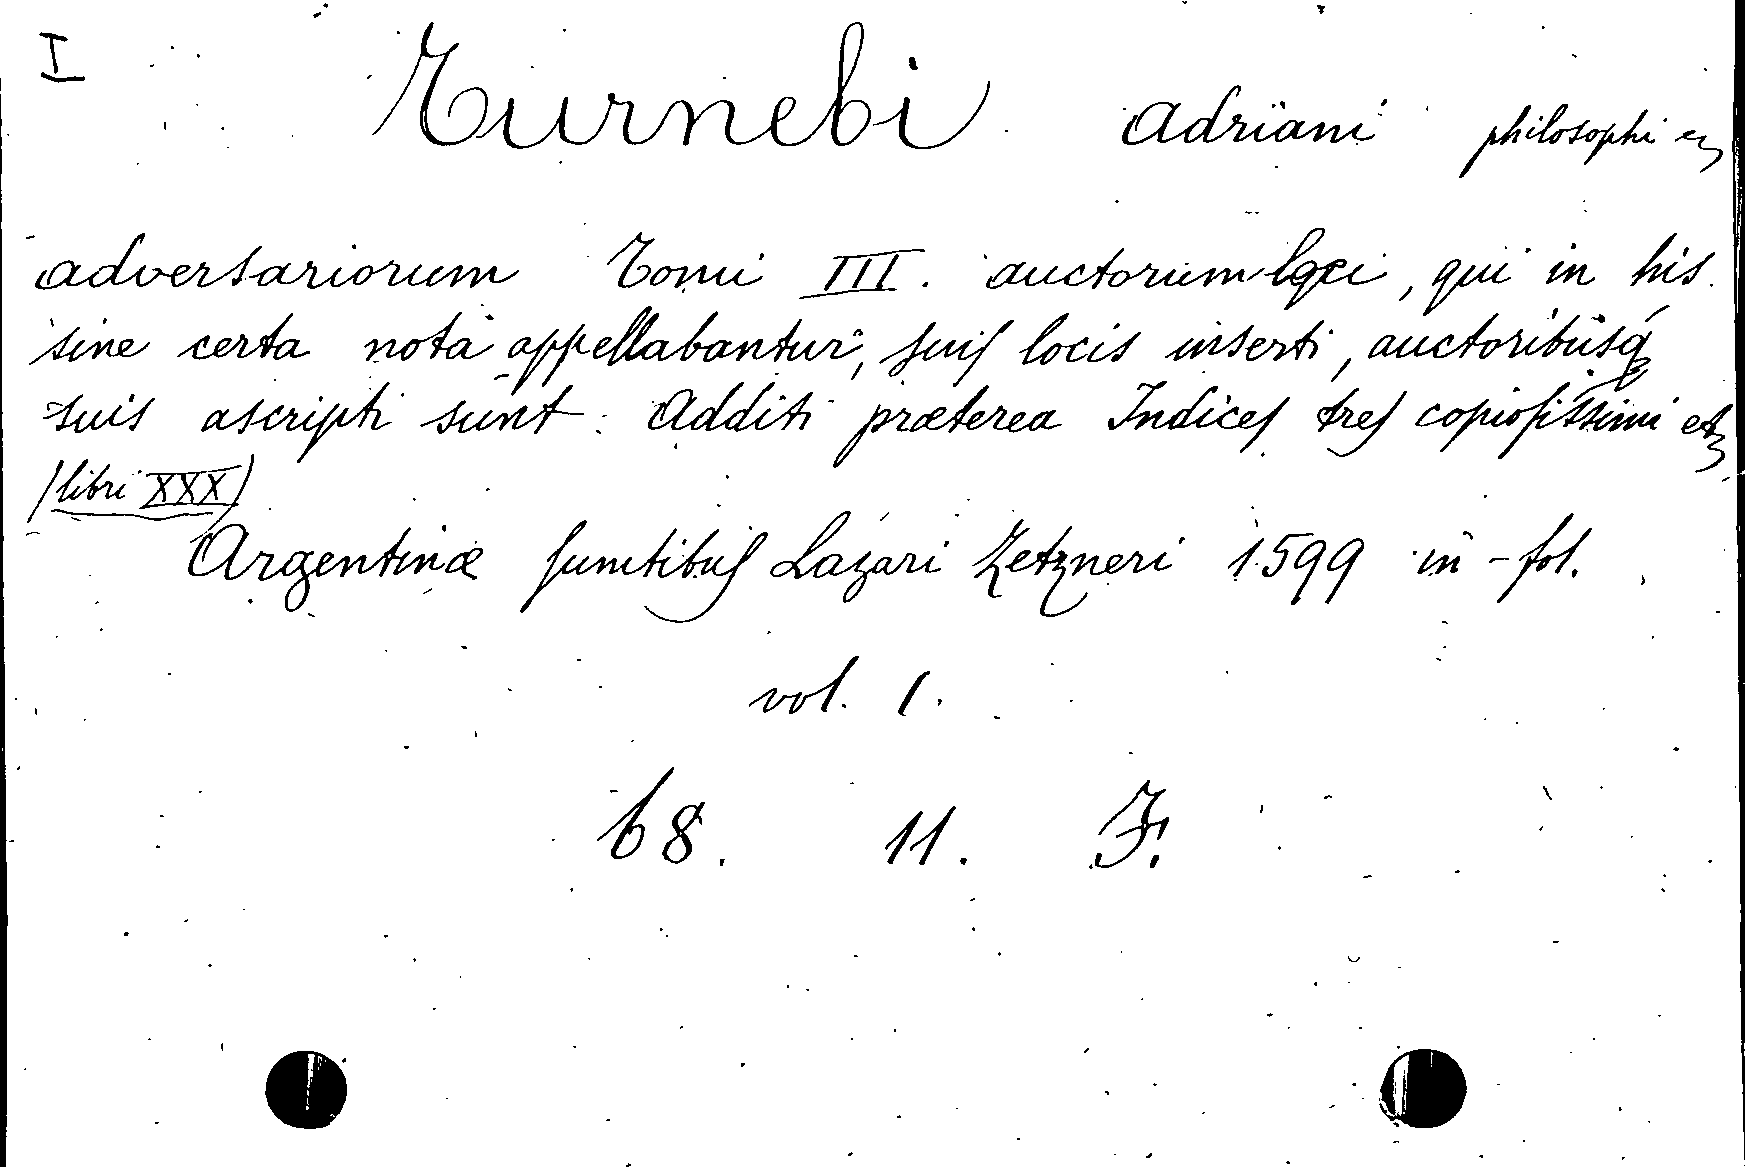 I
Turnebi Adriani philosophi
adversariorum Tomi III. auctorum loci, qui in his
sine certa nota appellabantur, suis locis inserti, auctoribusq
suis ascripti sunt. Additi præterea Indices tres copiosissimi etz
(libri XXX)
Argentinæ sumtibus Lazari Zetzneri 1599 in-fol.
vol. 1.
68. 11. F.